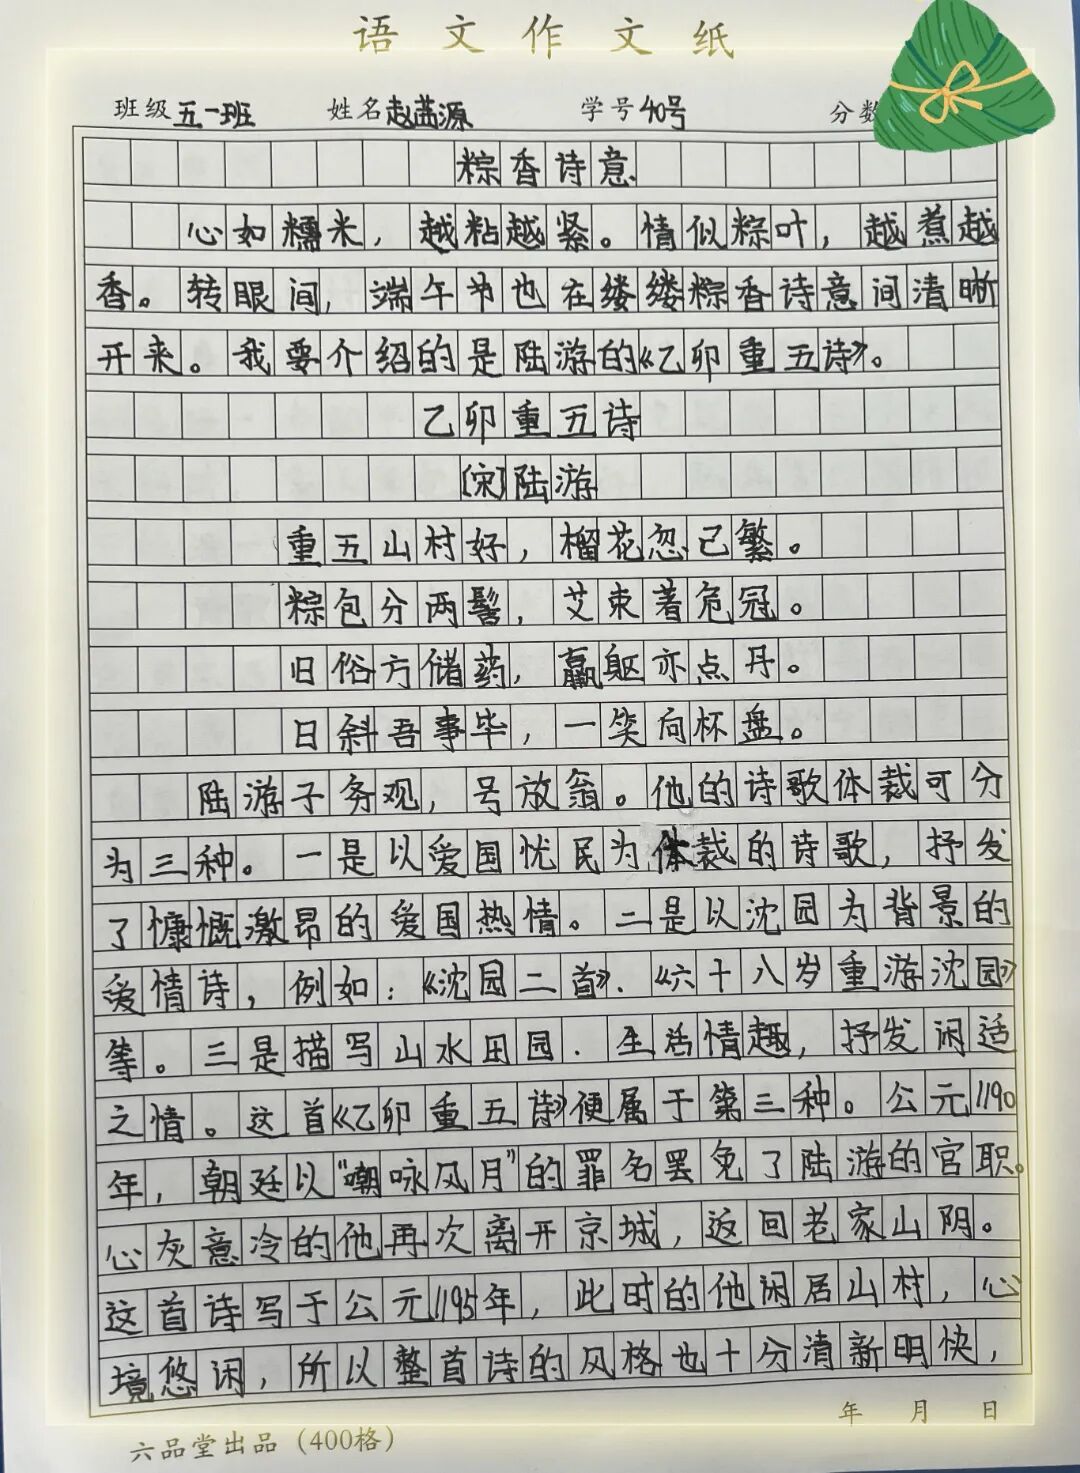 语文作文纸
班级 五一班 姓名 赵茁源 学号 40号 分数
粽香诗意
心如糯米，越粘越紧。情似粽叶，越煮越
香。转眼间，端午节也在缕缕粽香诗意间清晰
开来。我要介绍的是陆游的《乙卯重五诗》。
乙卯重五诗
[宋]陆游
重五山村好，榴花忽已繁。
粽包分两髻，艾束著危冠。
旧俗方储药，羸躯亦点丹。
日斜吾事毕，一笑向杯盘。
陆游子务观，号放翁。他的诗歌体裁可分
为三种。一是以爱国忧民为体裁的诗歌，抒发
了慷慨激昂的爱国热情。二是以沈园为背景的
爱情诗，例如：《沈园二首》、《六十八岁重游沈园》
等。三是描写山水田园、生活情趣，抒发闲适
之情。这首《乙卯重五诗》便属于第三种。公元1190
年，朝廷以“嘲咏风月”的罪名罢免了陆游的官职。
心灰意冷的他再次离开京城，返回老家山阴。
这首诗写于公元1195年，此时的他闲居山村，心
境悠闲，所以整首诗的风格也十分清新明快，
年 月 日
六品堂出品（400格）